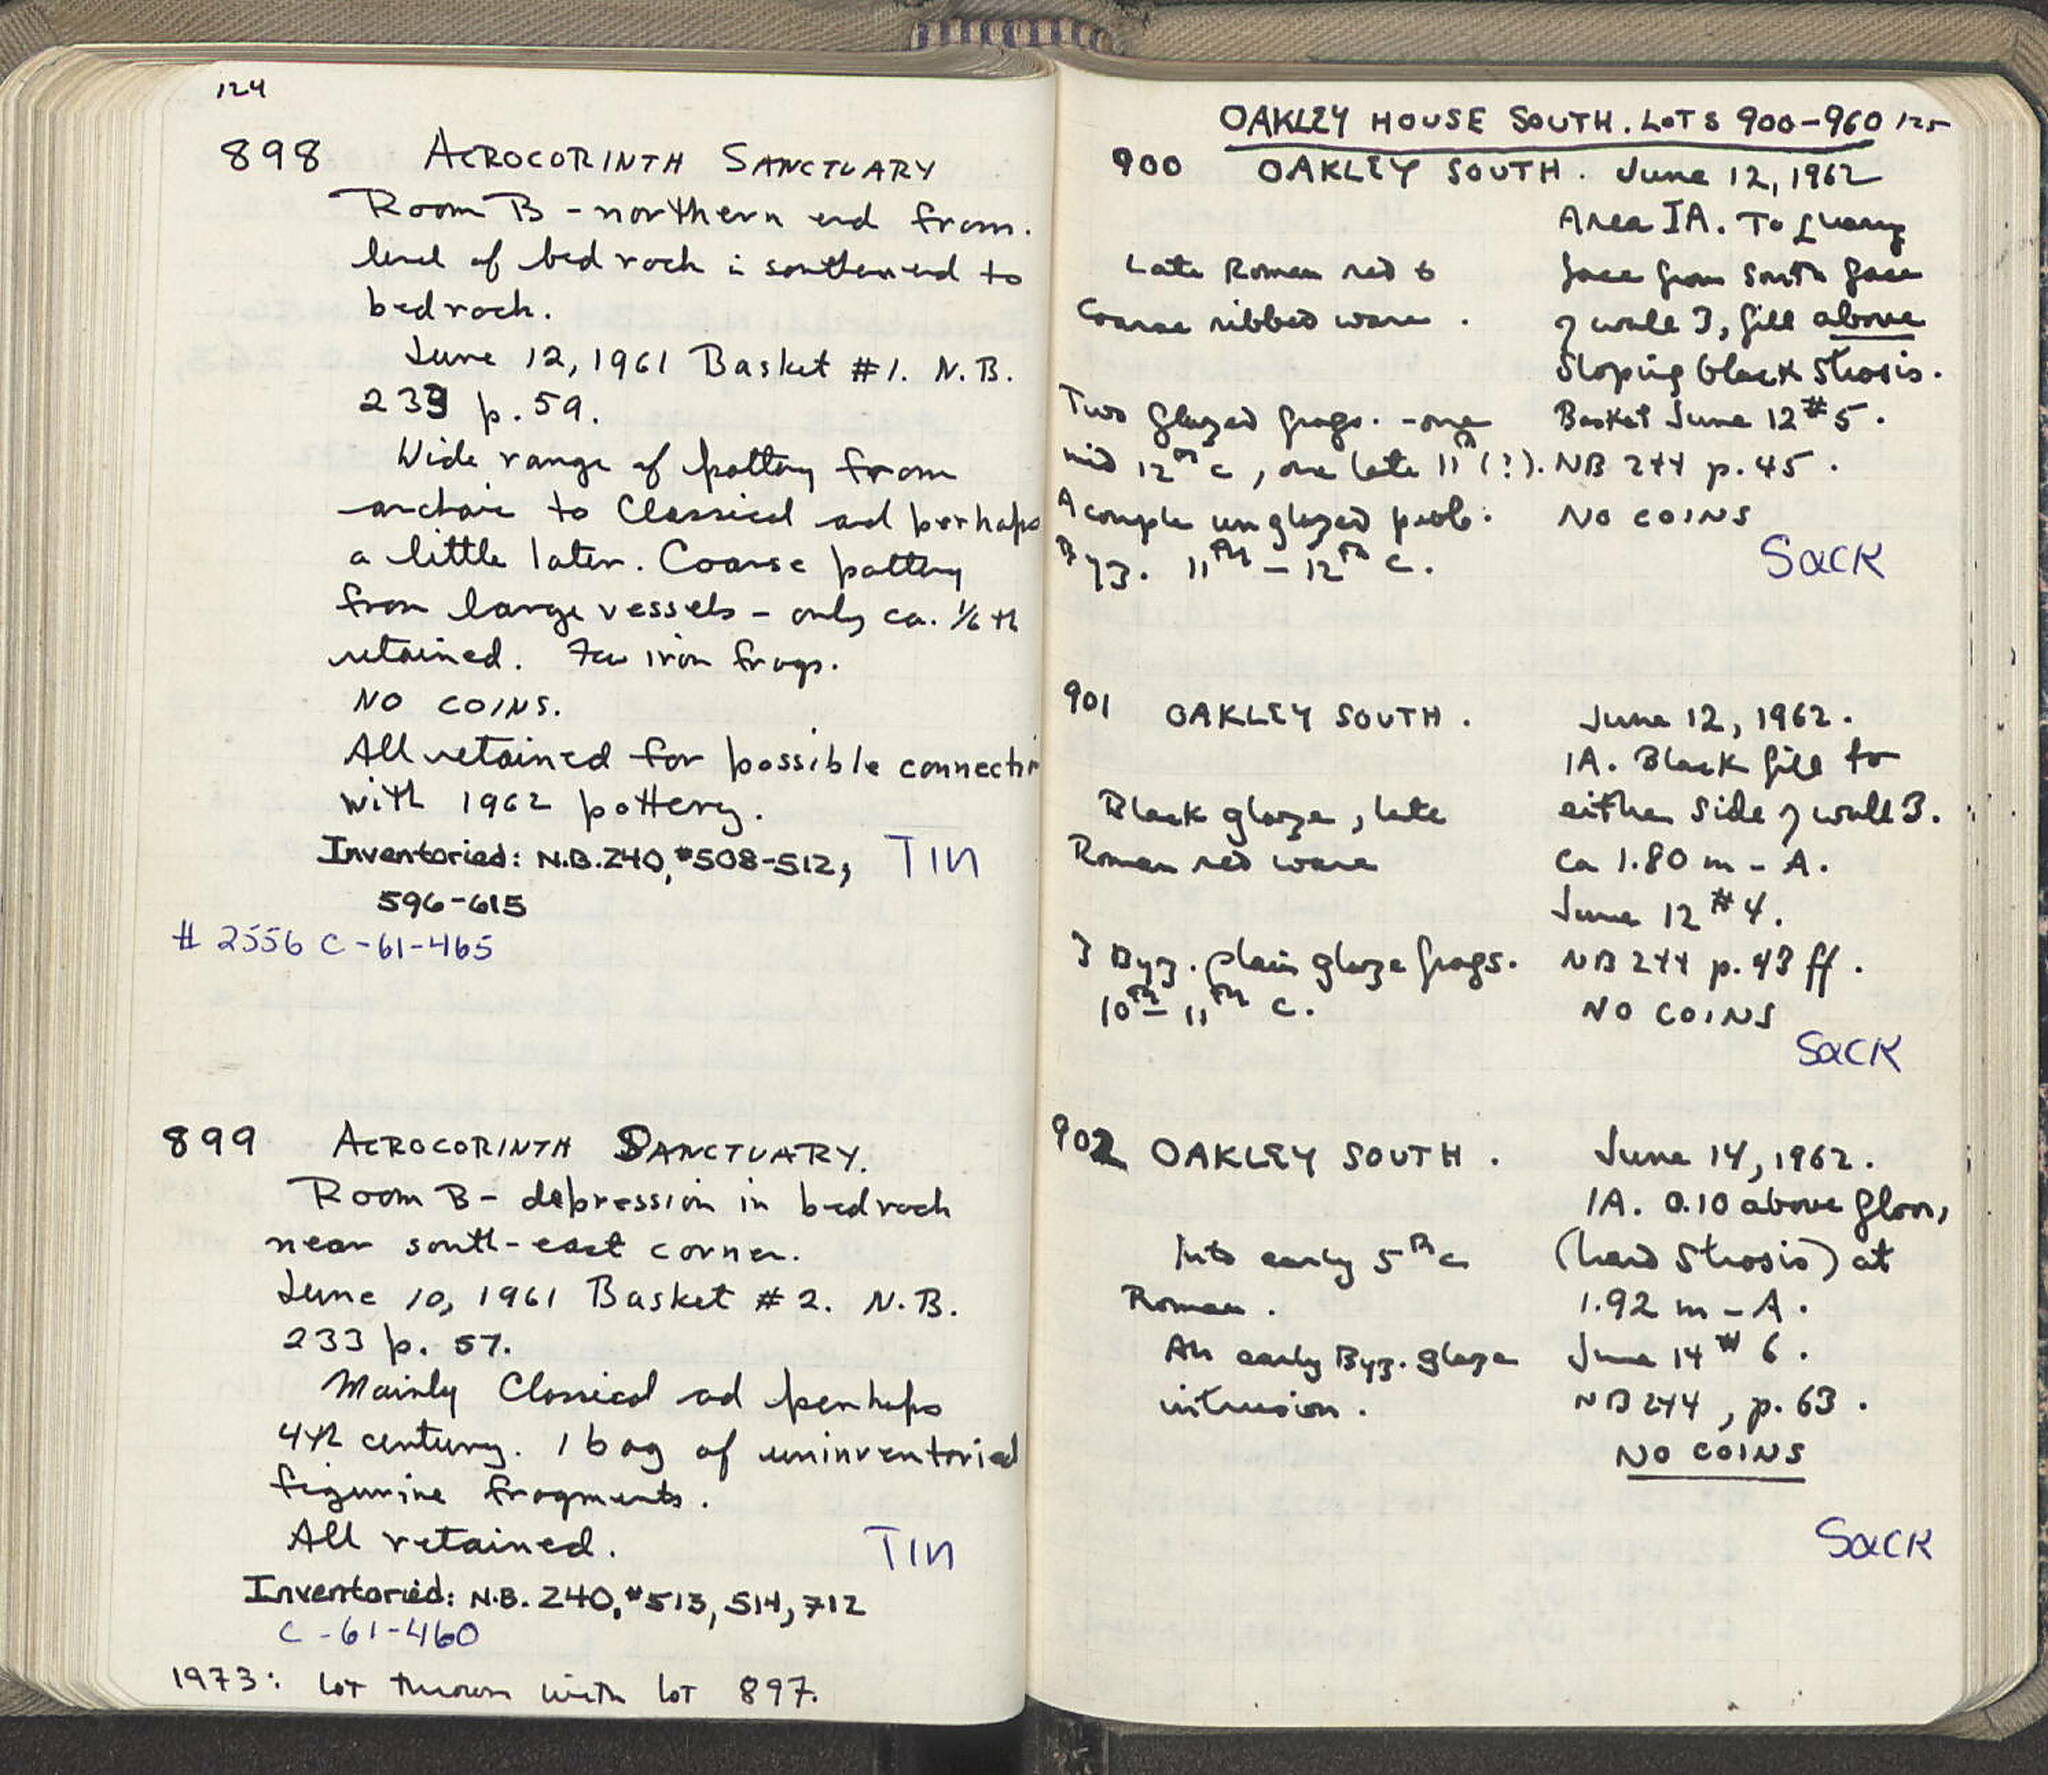 124
898 ACROCORINTH SANCTUARY
Room B - northern end from.
level of bedrock in southern end to
bedrock.
June 12, 1961 Basket #1. N.B.
233 p. 59.
Wide range of pottery from
archaic to Classical and perhaps
a little later. Coarse pottery
from large vessels - only ca. 1/6 th
retained. Few iron frags.
NO COINS.
All retained for possible connectin
with 1962 pottery.
Inventoried: N.B. 240, #508-512, TIN
596-615
# 2556 C-61-465
899 ACROCORINTH SANCTUARY.
Room B - depression in bedrock
near south-east corner.
June 10, 1961 Basket #2. N.B.
233 p. 57.
Mainly Classical and perhaps
4th century. 1 bag of uninventoried
figurine fragments.
All retained. TIN
Inventoried: N.B. 240, #513, 514, 712
C-61-460
1973: lot thrown with lot 897.
OAKLEY HOUSE SOUTH. LOTS 900-960 125
900 OAKLEY SOUTH. June 12, 1962
Area IA. To quarry
Late Roman red &
face from South face
Coarse ribbed ware.
of wall 3, fill above
Sloping black Strosis.
Two glazed frags. - one
Basket June 12 #5.
mid 12th c, one late 11th (?).
NB 244 p. 45.
A couple unglazed prob.
NO COINS
Byz. 11th - 12th c.
SACK
901 OAKLEY SOUTH. June 12, 1962.
IA. Black fill to
Black glaze, late
either side of wall 3.
Roman red ware
ca 1.80 m - A.
June 12 #4.
3 Byz. plain glaze frags.
NB 244 p. 43 ff.
10th - 11th c.
NO COINS
SACK
902 OAKLEY SOUTH. June 14, 1962.
IA. 0.10 above floor,
Into early 5th c
(hard Strosis) at
Roman.
1.92 m - A.
An early Byz. glaze
June 14 # 6.
intrusion.
NB 244, p. 63.
NO COINS
SACK